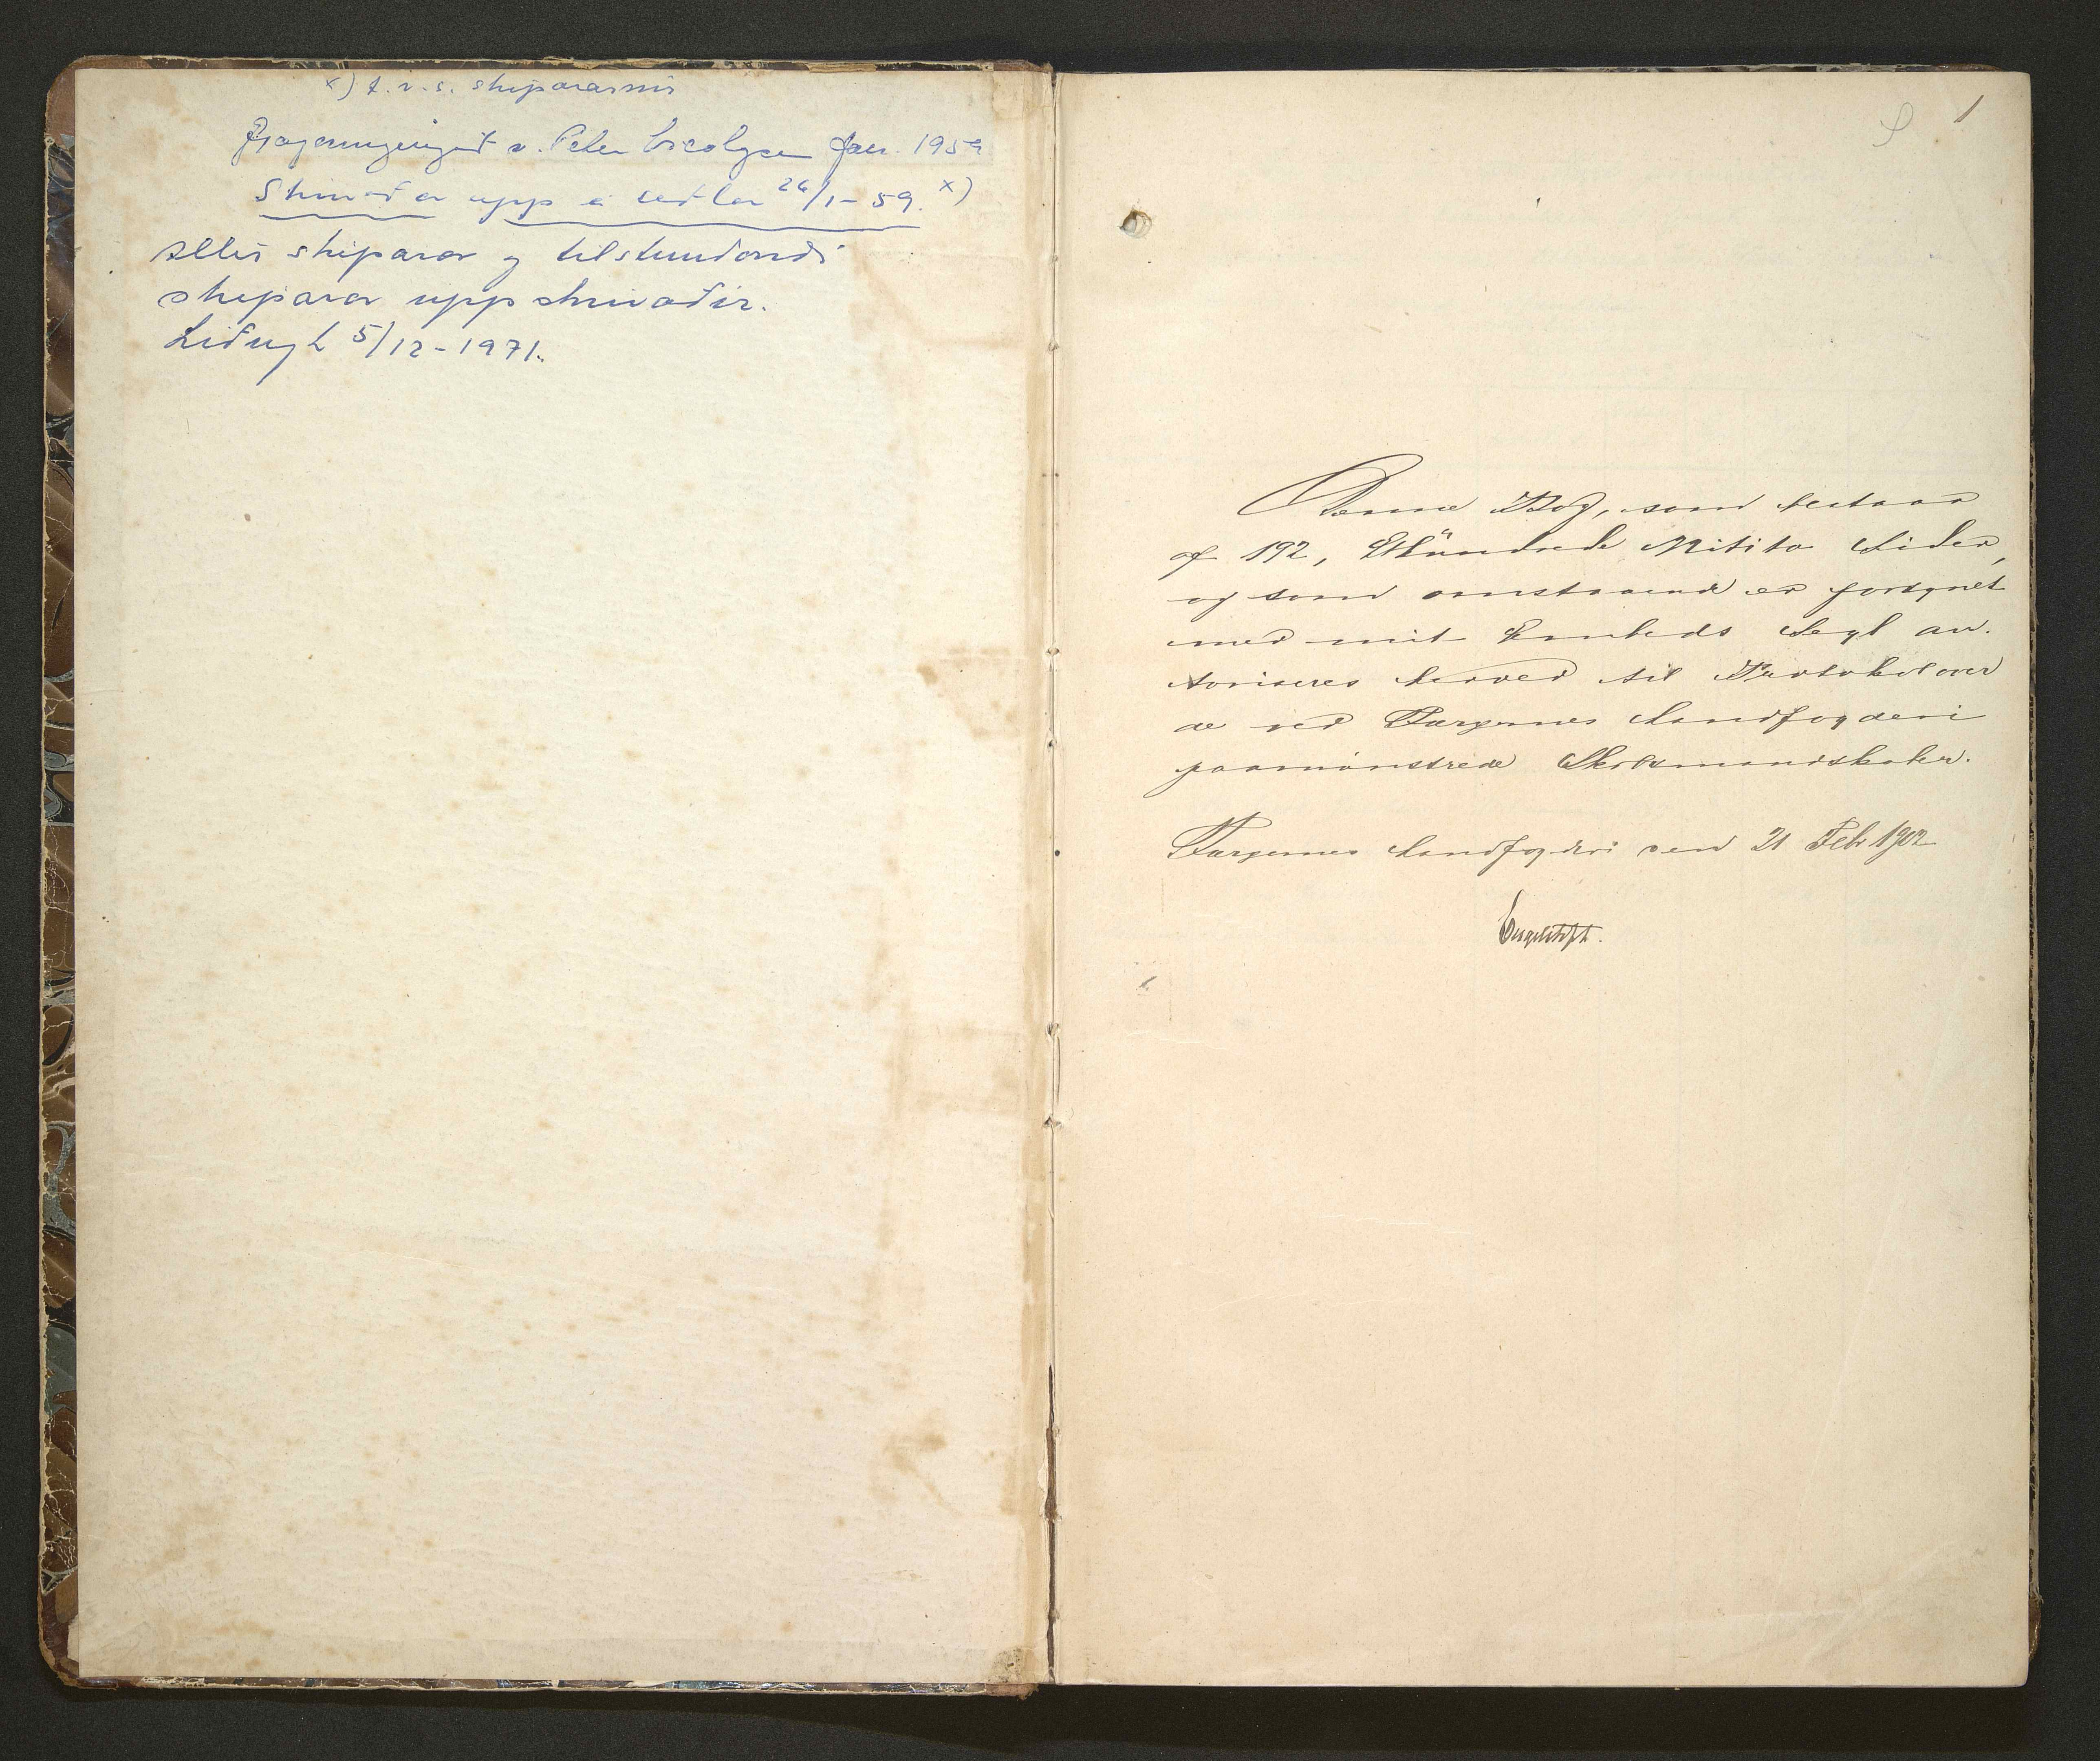 x) t.v.s. skipararnir
Gjøgnumgingið v. Peter Jan. 1959
Skrivaðar upp á seðlar 26/1-59. x)
Allir skiparar og tilstundandi
skiparar uppskrivaðir.
Liðugt 5/12-1971.
1
Denne Bog, som bestaar
af 192, Ethundrede Nitito Sider,
og som omstaaende er forsynet
med mit Embeds Segl au-
toriseres herved til Protokol over
de ved Færøernes Landfogderi
paamønstrede Skibsmandskaber.
Færøernes Landfogderi den 21 Feb 1902